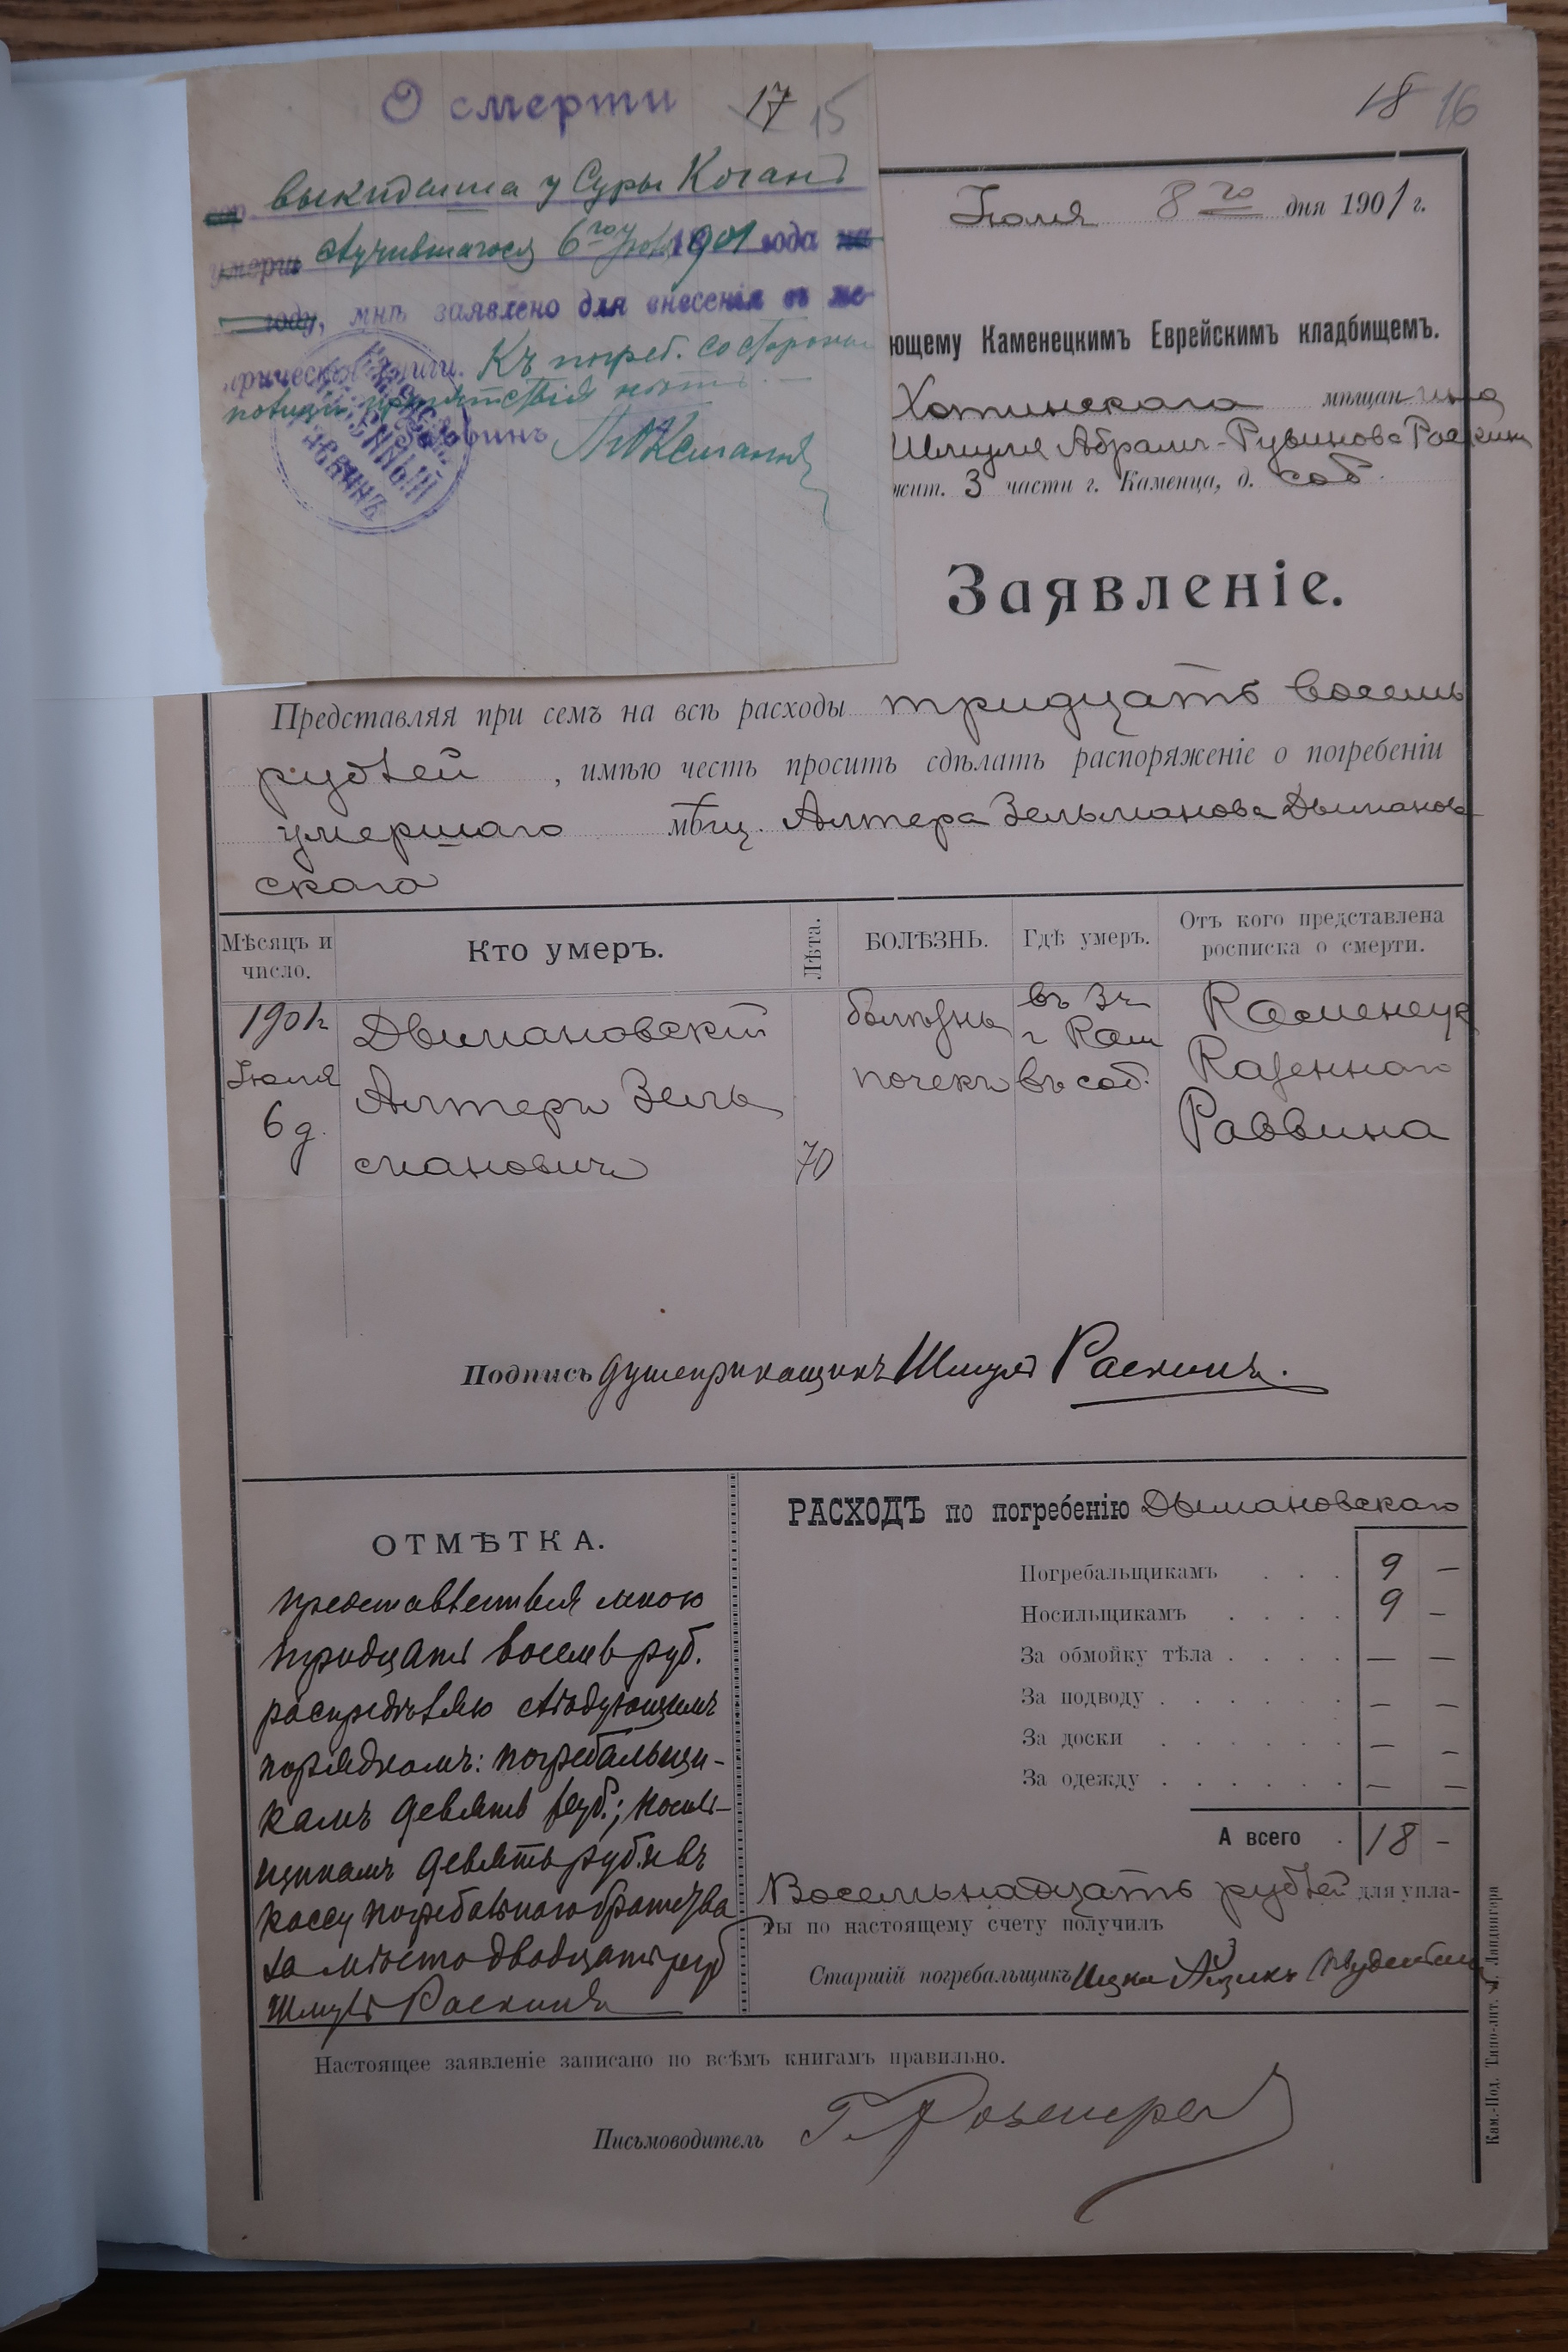 О смерти 17 15
выкидыша у Суры Коганъ
случившагося 6го Іюля 1901 года
году, мнѣ заявлено для внесенія въ ме-
трическія книги. Къ погреб. со стороны
полиціи препятствія нѣтъ. —
Раввинъ
КАЗЕННЫЙ
РАВВИНЪ
18 16
Іюля 8го дня 1901 г.
ющему Каменецкимъ Еврейскимъ кладбищемъ.
Хотинскаго мѣщанина
Шмуля Абрамъ-Рувинова Раскина
жит. 3 части г. Каменца, д. соб.
Заявленіе.
Представляя при семъ на всѣ расходы тридцать восемь
рублей, имѣю честь просить сдѣлать распоряженіе о погребеніи
умершаго мѣщ. Алтера Зельманова Дымановскаго
скаго
Мѣсяцъ и число. Кто умеръ. Лѣта. БОЛѢЗНЬ. Гдѣ умеръ. Отъ кого представлена росписка о смерти.
1901 г. Дымановскій болѣзнь въ 3 ч. Каменецк.
Іюля Алтеръ Зель почекъ г. Кам. Казеннаго
6 д. мановичъ 70 въ соб. Раввина
Подпись душеприкащикъ Шмуль Раскинъ.
ОТМѢТКА.
представленныя мною
тридцать восемь руб.
распредѣляю слѣдующимъ
порядкомъ: погребальщи-
камъ девять руб.; носиль-
щикамъ девять руб. и въ
кассу погребальнаго братства
за мѣсто двадцать руб
Шмуль Раскинъ
РАСХОДЪ по погребенію Дымановскаго
Погребальщикамъ . . . 9 —
Носильщикамъ . . . . 9 —
За обмойку тѣла . . . . — —
За подводу . . . . . . — —
За доски . . . . . . — —
За одежду . . . . . . — —
А всего . 18 —
Восемьнадцать рублей для упла-
ты по настоящему счету получилъ
Старшій погребальщикъ Ицко Айзикъ
Настоящее заявленіе записано по всѣмъ книгамъ правильно.
Письмоводитель
Кам.-Под. Типо-лит. Л. Ландвигера